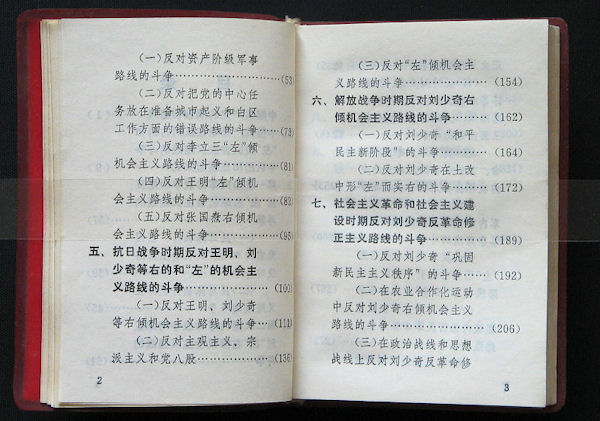 (一)反对资产阶级军事
路线的斗争……………(53)
(二)反对把党的中心任
务放在准备城市起义和白区
工作方面的错误路线的斗争……(73)
(三)反对李立三“左”倾
机会主义路线的斗争…………(81)
(四)反对王明“左”倾机
会主义路线的斗争……………(82)
(五)反对张国焘右倾机
会主义路线的斗争……………(95)
五、抗日战争时期反对王明、刘
少奇等右的和“左”的机会主
义路线的斗争……………(100)
(一)反对王明、刘少奇
等右倾机会主义路线的斗争……(111)
(二)反对主观主义、宗
派主义和党八股……………(136)
2
(三)反对“左”倾机会主
义路线的斗争……………(154)
六、解放战争时期反对刘少奇右
倾机会主义路线的斗争………(162)
(一)反对刘少奇“和平
民主新阶段”的斗争…………(164)
(二)反对刘少奇在土改
中形“左”而实右的斗争………(172)
七、社会主义革命和社会主义建
设时期反对刘少奇反革命修
正主义路线的斗争……………(189)
(一)反对刘少奇“巩固
新民主主义秩序”的斗争………(192)
(二)在农业合作化运动
中反对刘少奇右倾机会主义
路线的斗争……………(206)
(三)在政治战线和思想
战线上反对刘少奇反革命修
3